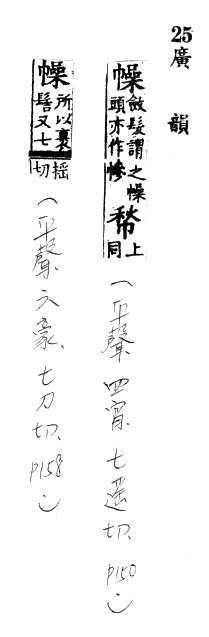 25 廣韻
幧 斂髮謂之幧
頭亦作幓
上
同
(平聲.四宵.七遥切.p150.)
幧 所以裹
髻又七
搖
切
(平聲.六豪.七刀切.p158.)